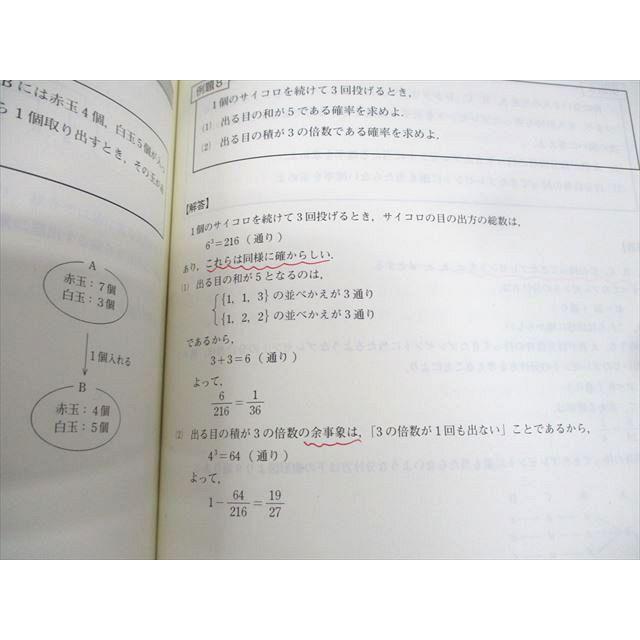 Bには赤玉4個，白玉5個が入っ
ら1個取り出すとき，その玉が赤
A
赤玉：7個
白玉：3個
1個入れる
B
赤玉：4個
白玉：5個
例題8
1個のサイコロを続けて3回投げるとき，
(1) 出る目の和が5である確率を求めよ．
(2) 出る目の積が3の倍数である確率を求めよ．
【解答】
1個のサイコロを続けて3回投げるとき，サイコロの目の出方の総数は，
6³＝216（通り）
あり，これらは同様に確からしい．
(1) 出る目の和が5となるのは，
{1，1，3}の並べかえが3通り
{1，2，2}の並べかえが3通り
であるから，
3＋3＝6（通り）
よって，
6/216＝1/36
(2) 出る目の積が3の倍数の余事象は，「3の倍数が1回も出ない」ことであるから，
4³＝64（通り）
よって，
1－64/216＝19/27